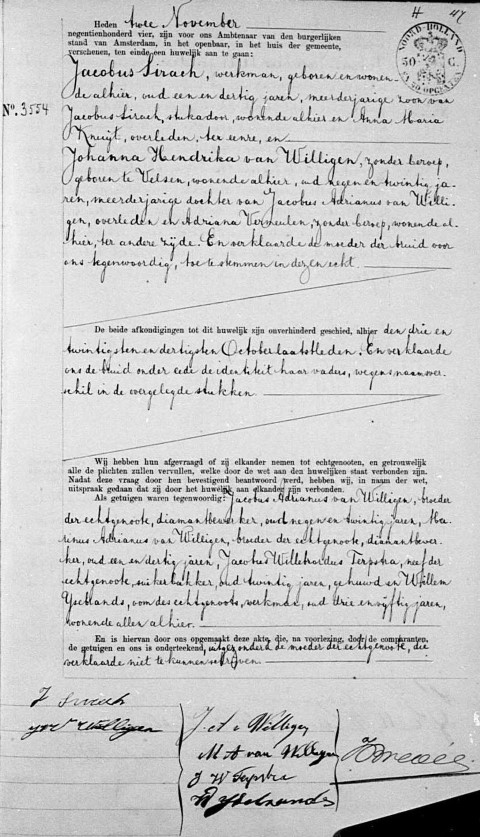 H 47
NOORD-HOLLAND
50 C.
Heden twee November
negentienhonderd vier, zijn voor ons Ambtenaar van den burgerlijken
stand van Amsterdam, in het openbaar, in het huis der gemeente,
verschenen, ten einde een huwelijk aan te gaan:
Jacobus Sirach, werkman, geboren en wonen-
de alhier, oud een en dertig jaren, meerderjarige zoon van
No. 3554
Jacobus Sirach, stukadoor, wonende alhier en Anna Maria
Kneijt, overleden, ter eenre, en
Johanna Hendrika van Willigen, zonder beroep,
geboren te Velsen, wonende alhier, oud negen en twintig ja-
ren, meerderjarige dochter van Jacobus Adrianus van Willi-
gen, overleden en Adriana Vermeulen, zonder beroep, wonende al-
hier, ter andere zijde. En verklaarde de moeder der bruid voor
ons tegenwoordig, toe te stemmen in dezen echt.
De beide afkondigingen tot dit huwelijk zijn onverhinderd geschied, alhier den drie en
twintigsten en dertigsten October laatstleden. En verklaarde
ons de bruid onder eede de identiteit haar vaders, wegens naamsver-
schil in de overgelegde stukken.
Wij hebben hun afgevraagd of zij elkander nemen tot echtgenooten, en getrouwelijk
alle de plichten zullen vervullen, welke door de wet aan den huwelijken staat verbonden zijn.
Nadat deze vraag door hen bevestigend beantwoord werd, hebben wij, in naam der wet,
uitspraak gedaan dat zij door het huwelijk aan elkander zijn verbonden.
Als getuigen waren tegenwoordig: Jacobus Adrianus van Willigen, broeder
der echtgenoote, diamantbewerker, oud negen en twintig jaren, Ma-
rinus Adrianus van Willigen, broeder der echtgenoote, diamantbewer-
ker, oud een en dertig jaren, Jacobus Willebordus Terpstra, neef der
echtgenoote, suikerbakker, oud twintig jaren, gehuwd en Willem
IJselands, oom des echtgenoots, werkman, oud drie en vijftig jaren,
wonende allen alhier.
En is hiervan door ons opgemaakt deze akte, die, na voorlezing, door de comparanten,
de getuigen en ons is onderteekend, uitgezonderd de moeder der echtgenoote, die
verklaarde niet te kunnen schrijven.
J Sirach
J. A v Willigen
M A van Willigen
J W Terpstra